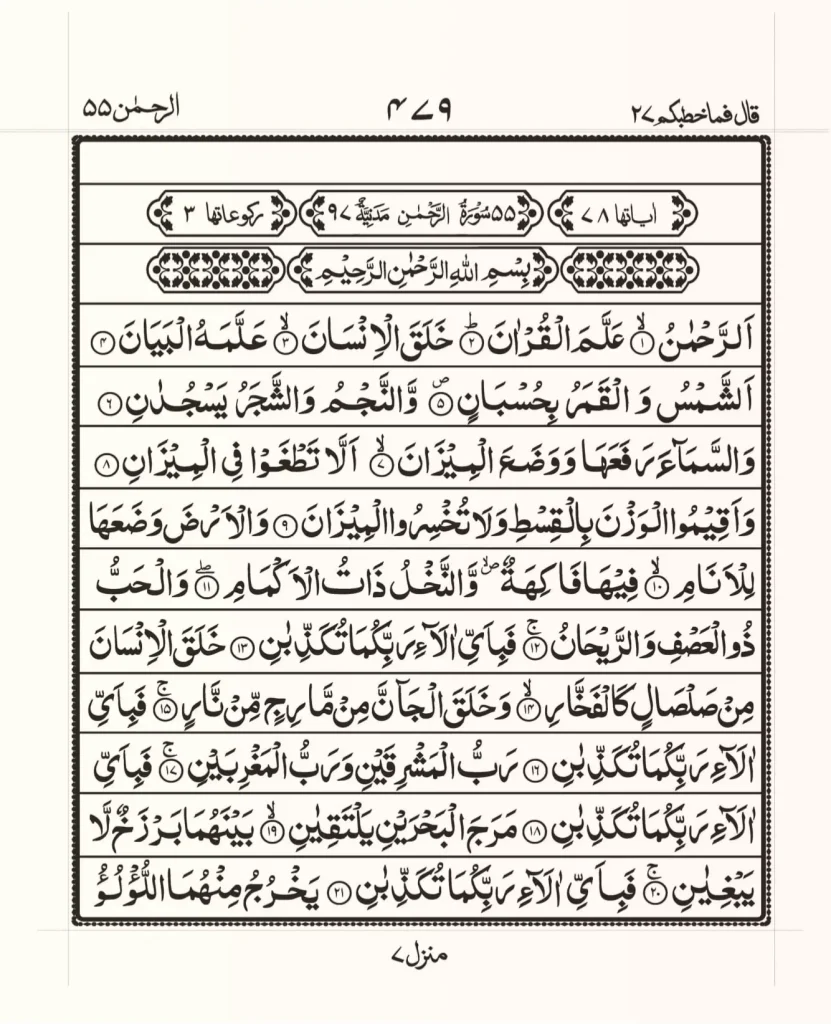 قال فما خطبكم ۲۷ ۴۷۹ الرحمٰن ۵۵
اٰیاتها ۷۸ ۵۵ سُوْرَةُ الرَّحْمٰنِ مَدَنِيَّةٌ ۹۷ رکوعاتها ۳
بِسْمِ اللّٰهِ الرَّحْمٰنِ الرَّحِيْمِ
اَلرَّحْمٰنُۙ‏﴿۱﴾ عَلَّمَ الْقُرْاٰنَؕ‏﴿۲﴾ خَلَقَ الْاِنْسَانَۙ‏﴿۳﴾ عَلَّمَهُ الْبَيَانَ‏﴿۴﴾
اَلشَّمْسُ وَ الْقَمَرُ بِحُسْبَانٍ۪‏﴿۵﴾ وَّالنَّجْمُ وَالشَّجَرُ يَسْجُدٰنِ‏﴿۶﴾
وَالسَّمَآءَ رَفَعَهَا وَوَضَعَ الْمِيْزَانَۙ‏﴿۷﴾ اَلَّا تَطْغَوْا فِى الْمِيْزَانِ‏﴿۸﴾
وَاَقِيْمُوا الْوَزْنَ بِالْقِسْطِ وَلَا تُخْسِرُوا الْمِيْزَانَ‏﴿۹﴾ وَالْاَرْضَ وَضَعَهَا
لِلْاَنَامِۙ‏﴿۱۰﴾ فِيْهَا فَاكِهَةٌ ۪ۙ وَّالنَّخْلُ ذَاتُ الْاَكْمَامِۖ‏﴿۱۱﴾ وَالْحَبُّ
ذُو الْعَصْفِ وَالرَّيْحَانُۚ‏﴿۱۲﴾ فَبِاَىِّ اٰلَآءِ رَبِّكُمَا تُكَذِّبٰنِ‏﴿۱۳﴾ خَلَقَ الْاِنْسَانَ
مِنْ صَلْصَالٍ كَالْفَخَّارِۙ‏﴿۱۴﴾ وَخَلَقَ الْجَآنَّ مِنْ مَّارِجٍ مِّنْ نَّارٍۚ‏﴿۱۵﴾ فَبِاَىِّ
اٰلَآءِ رَبِّكُمَا تُكَذِّبٰنِ‏﴿۱۶﴾ رَبُّ الْمَشْرِقَيْنِ وَرَبُّ الْمَغْرِبَيْنِۚ‏﴿۱۷﴾ فَبِاَىِّ
اٰلَآءِ رَبِّكُمَا تُكَذِّبٰنِ‏﴿۱۸﴾ مَرَجَ الْبَحْرَيْنِ يَلْتَقِيٰنِۙ‏﴿۱۹﴾ بَيْنَهُمَا بَرْزَخٌ لَّا
يَبْغِيٰنِۚ‏﴿۲۰﴾ فَبِاَىِّ اٰلَآءِ رَبِّكُمَا تُكَذِّبٰنِ‏﴿۲۱﴾ يَخْرُجُ مِنْهُمَا اللُّؤْلُؤُ
منزل ۷